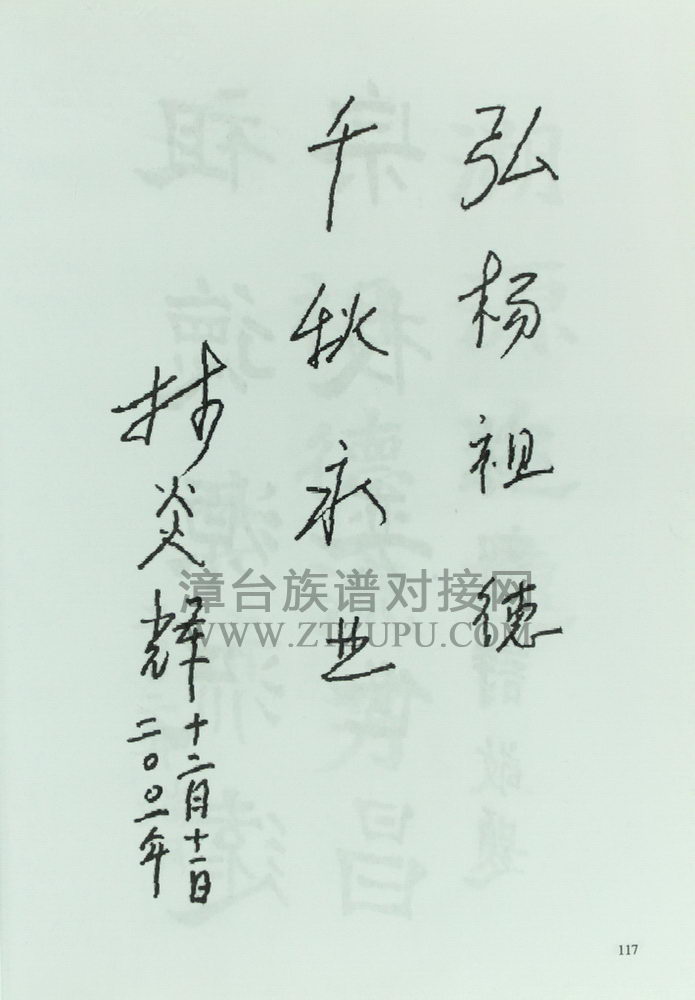 弘杨祖德
千秋永业
林炎辉
二〇〇一年
十二月十一日
漳台族谱对接网
WWW.ZTZUPU.COM
117